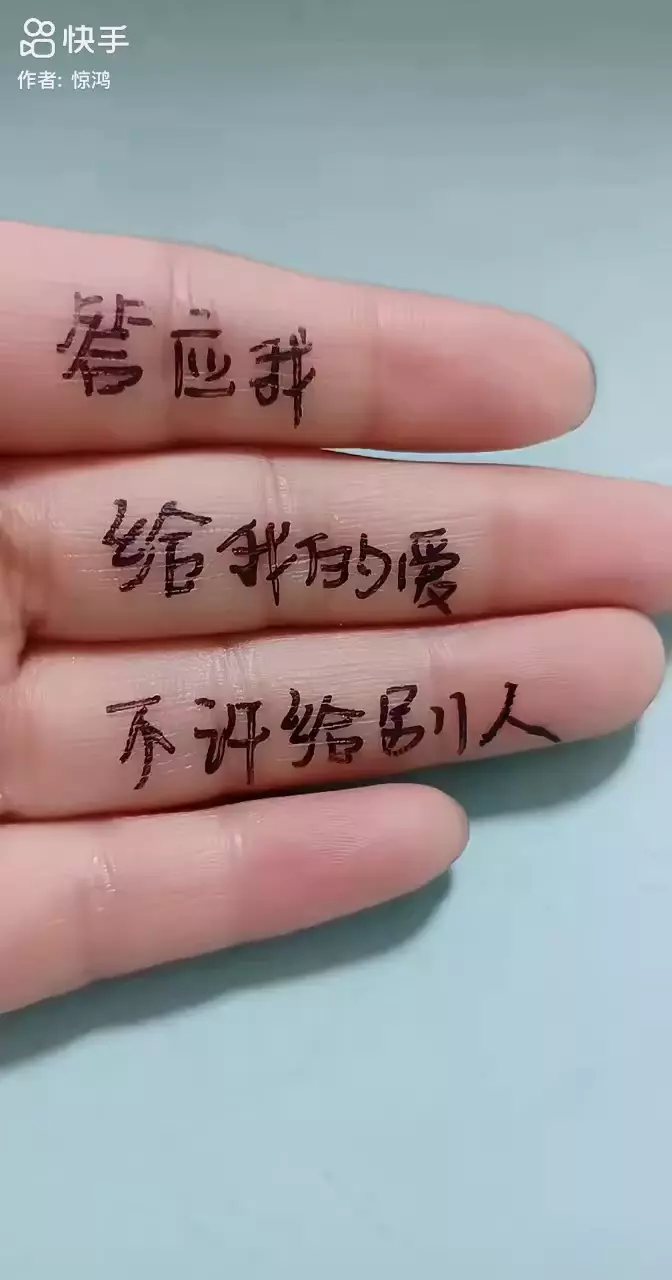 快手
作者: 惊鸿
答应我
给我的爱
不许给别人